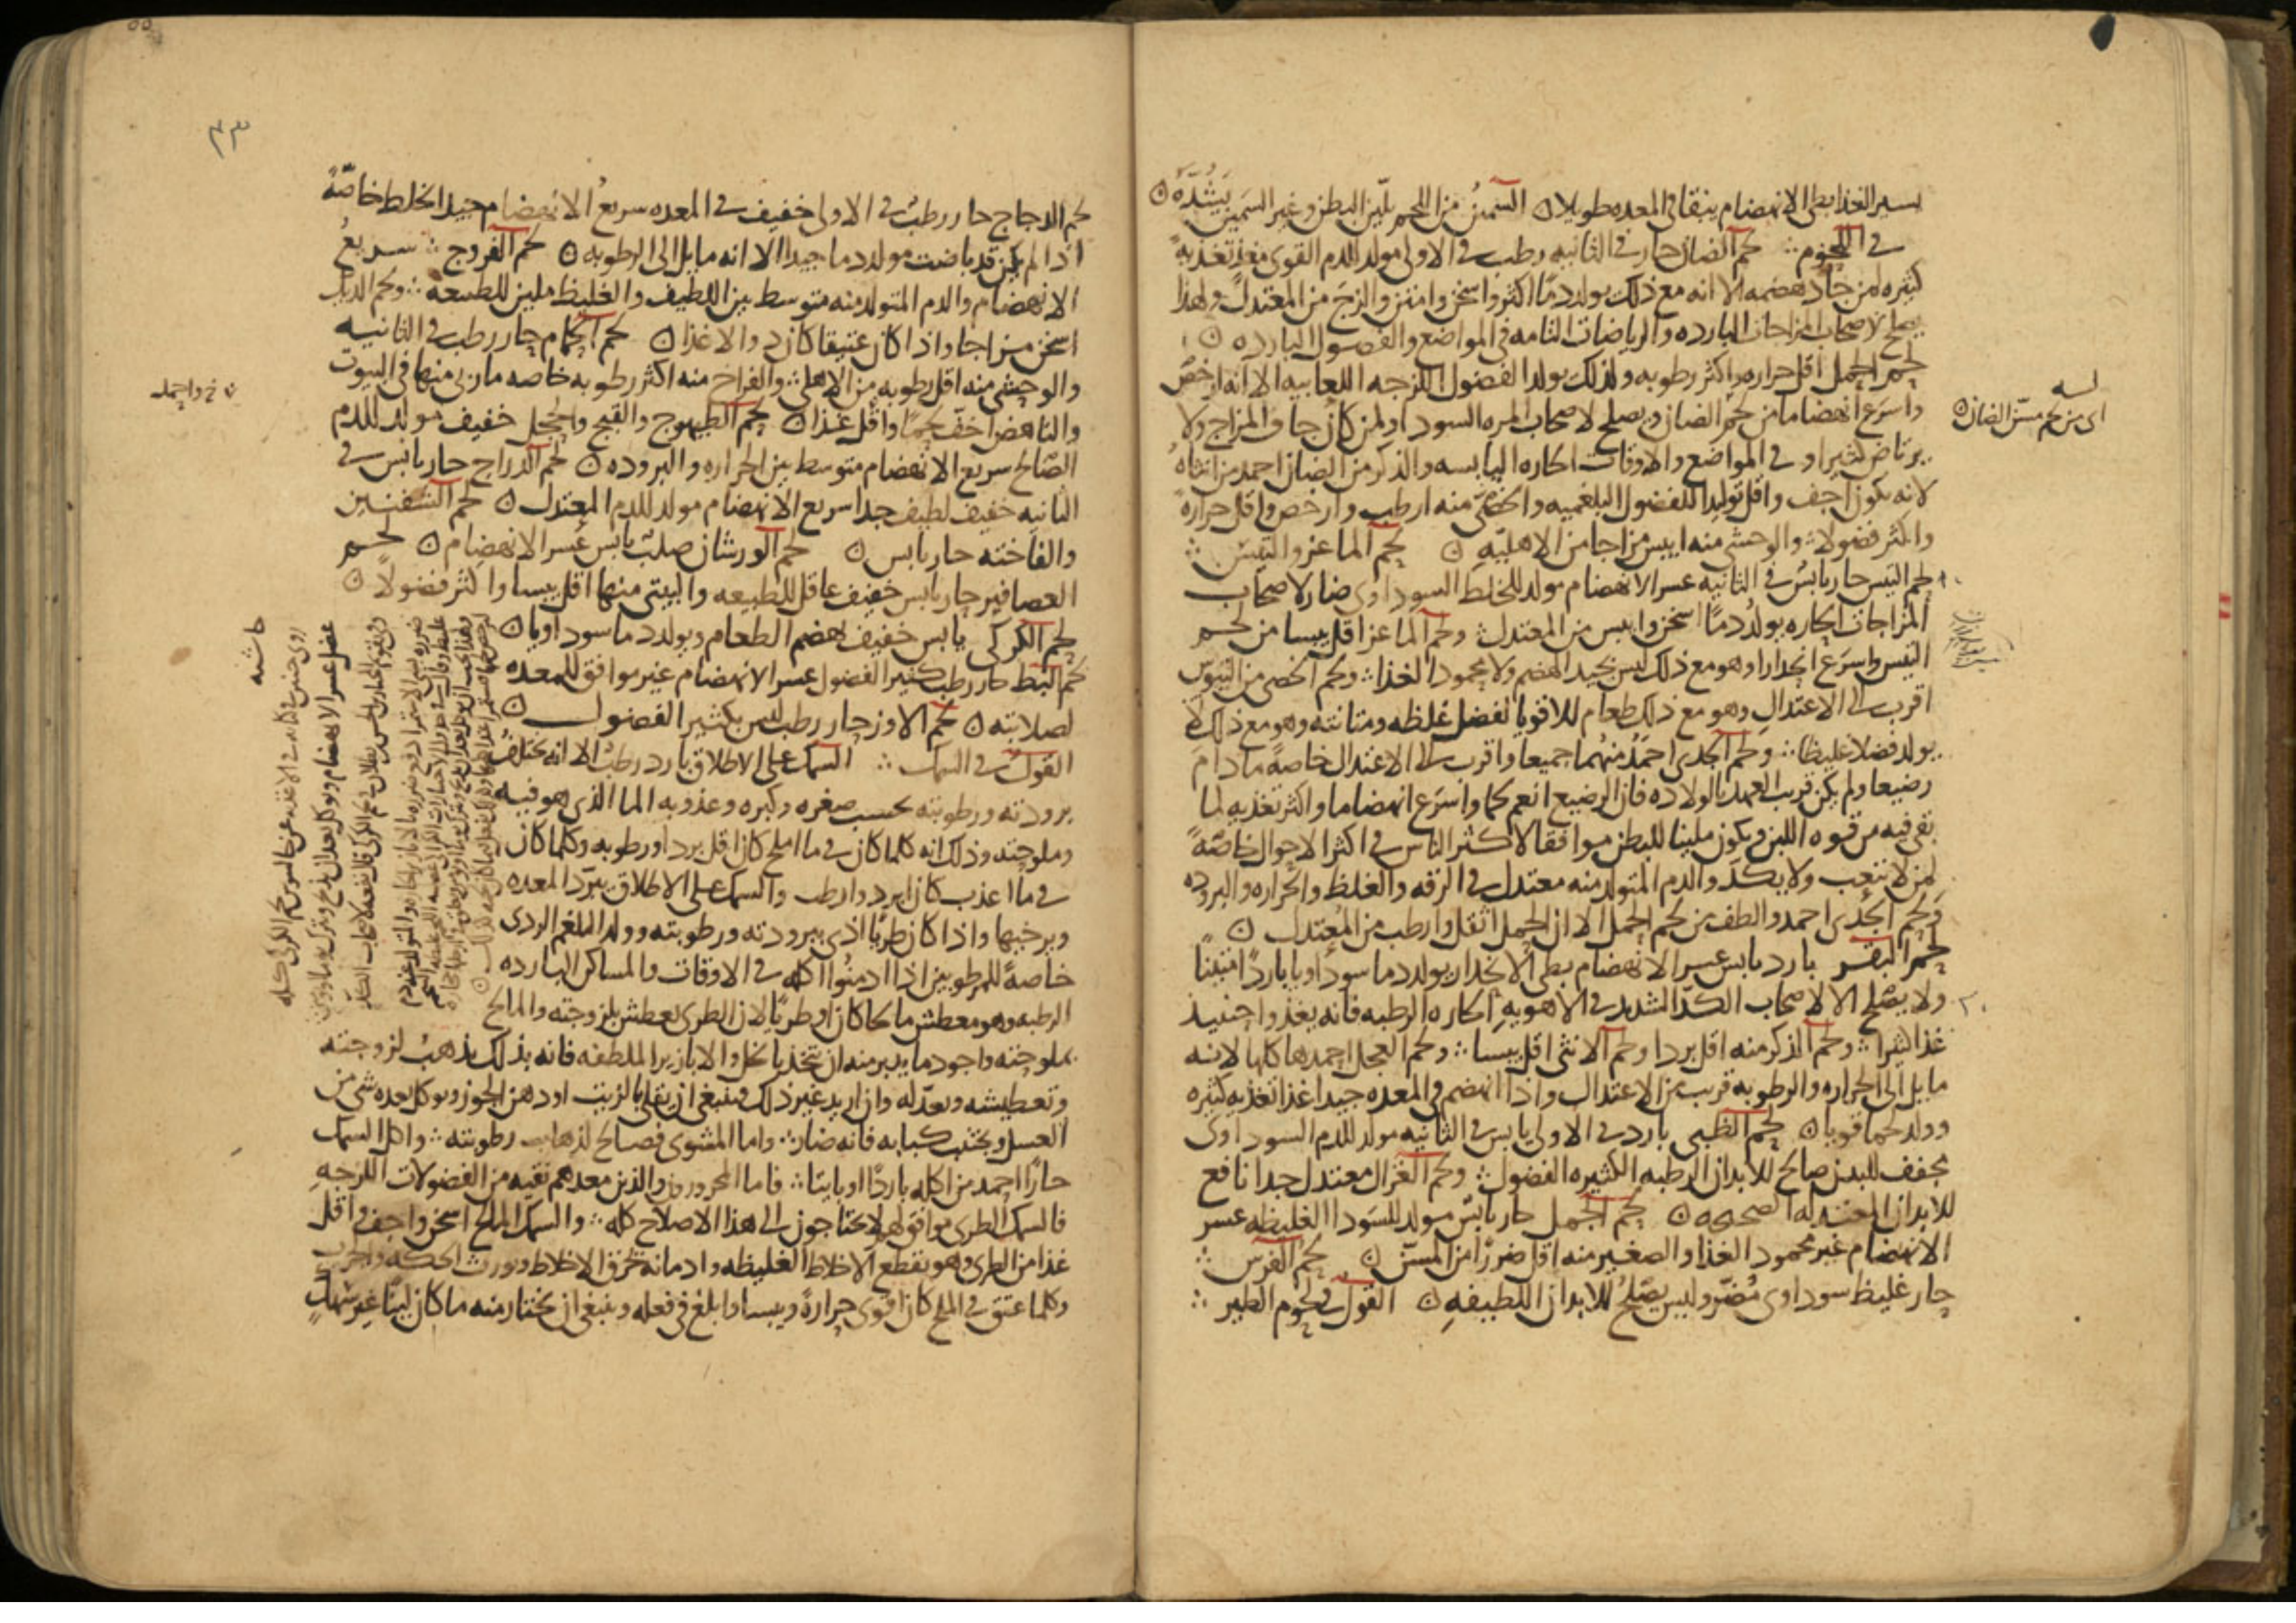 يسير الغذا بطى الانهضام يبقا فى المعده طويلا ۞ السمين من اللحم يلين البطن وغير السمين يشده ۞
فى اللحوم ∴ لحم الضان حار فى الثانيه رطب فى الاولى مولد للدم القوى مغذ تغذيه
كثيره لمن جاد هضمه الا انه مع ذلك يولد دما اكثر واسخن وامتن والزج من المعتدل ولهذا
يصلح لاصحاب المزاجات البارده والرياضات التامه فى المواضع والفصول البارده ۞
لحم الحمل اقل حراره واكثر رطوبه ولذلك يولد الفضول اللزجه اللعابيه الا انه ارخص
واسرع انهضاما من لحم الضان ويصلح لاصحاب المره السودا ولمن كان جاف المزاج ولا
يرتاض كثيرا و فى المواضع والاوقات الحاره اليابسه والذكر من الضان احمد من انثاه
لانه يكون اجف واقل توليدا للفضول البلغميه والخصى منه ارطب وارخص واقل حراره
واكثر فضولا ∴ والوحشى منه ايبس مزاجا من الاهليه ۞ لحم الماعز والتيس ∴
لحم التيس حار يابس فى الثانيه عسر الانهضام مولد للخلط السوداوى ضار لاصحاب
المزاجات الحاره يولد دما اسخن وايبس من المعتدل ∴ ولحم الماعز اقل يبسا من لحم
التيس واسرع انحدارا وهو مع ذلك ليس بجيد الهضم ولا محمود الغذا ∴ ولحم الخصى من التيوس
اقرب الى الاعتدال وهو مع ذلك طعام للاقويا لفضل غلظه ومتانته وهو مع ذلك لا
يولد فضلا غليظا ∴ ولحم الجدى احمد منهما جميعا واقرب الى الاعتدال خاصة ما دام
رضيعا ولم يكن قريب العهد بالولاده فان الرضيع انعم لحما واسرع انهضاما واكثر تغذيه لما
بقى فيه من قوه اللبن ويكون ملينا للبطن موافقا لاكثر الناس فى اكثر الاحوال خاصة
لمن لا يتعب ولا يكد والدم المتولد منه معتدل فى الرقه والغلظ والحراره والبروده
ولحم الجدى احمد والطف من لحم الحمل الا ان الحمل اثقل وارطب من المعتدل ۞
لحم البقر بارد يابس عسر الانهضام بطى الانحدار يولد دما سوداويا باردا متينا
ولا يصلح الا لاصحاب الكد الشديد فى الاهويه الحاره الرطبه فانه يغذوا حينيذ
غذا كثيرا ∴ ولحم الذكر منه اقل بردا ولحم الانثى اقل يبسا ∴ ولحم العجل احمدها كلها لانه
مايل الى الحراره والرطوبه قريب من الاعتدال واذا انهضم فى المعده جيدا غذا تغذيه كثيره
وولد لحما قويا ۞ لحم الظبى بارد فى الاولى يابس فى الثانيه مولد للدم السوداوى
مجفف للبدن صالح للابدان الرطبه الكثيره الفضول ∴ ولحم الغزال معتدل جدا نافع
للابدان المعتدله الصحيحه ۞ لحم الجمل حار يابس مولد للسودا الغليظه عسر
الانهضام غير محمود الغذا والصغير منه اقل ضررا من المسن ۞ لحم الفرس ∴
حار غليظ سوداوى مضر وليس يصلح للابدان اللطيفه ۞ القول فى لحوم الطير ∴
اى من لحم مسن الضان ۞
٤٣
لحم الدجاج حار رطب فى الاولى خفيف فى المعده سريع الانهضام جيد الخلط خاصة
اذا لم يكن قد باضت مولد دما جيدا الا انه مايل الى الرطوبه ۞ لحم الفروج ∴ سريع
الانهضام والدم المتولد منه متوسط بين اللطيف والغليظ ملين للطبيعه ∴ ولحم الديك
اسخن مزاجا واذا كان عتيقا كان دوا لا غذا ۞ لحم الحمام حار رطب فى الثانيه
والوحشى منه اقل رطوبه من الاهلى ∴ والفراخ منه اكثر رطوبه خاصه ما ربى منها فى البيوت
والناهض اخف لحما واقل غذا ۞ لحم الطيهوج والقبج والحجل خفيف مولد للدم
الصالح سريع الانهضام متوسط بين الحراره والبروده ۞ لحم الدراج حار يابس فى
الثانيه خفيف لطيف جدا سريع الانهضام مولد للدم المعتدل ۞ لحم الشفنين
والفاخته حار يابس ۞ لحم الورشان صلب يابس عسر الانهضام ۞ لحم
العصافير حار يابس خفيف عاقل للطبيعه والبيتى منها اقل يبسا واكثر فضولا ۞
لحم الكركى يابس خفيف يهضم الطعام ويولد دما سوداويا ۞
لحم البط حار رطب كثير الفضول عسر الانهضام غير موافق للمعده
لصلابته ۞ لحم الاوز حار رطب ليس بكثير الفضول ۞
القول فى السمك ∴ السمك على الاطلاق بارد رطب الا انه تختلف
برودته ورطوبته بحسب صغره وكبره وعذوبه الما الذى هو فيه
وملوحته وذلك انه كلما كان فى ما املح كان اقل بردا ورطوبه وكلما كان
فى ما اعذب كان ابرد وارطب والسمك على الاطلاق يبرد المعده
ويرخيها واذا كان طريا اذى ببرودته ورطوبته وولد البلغم الردى
خاصة للمرطوبين اذا ادمنوا اكله فى الاوقات والمساكن البارده
الرطبه وهو معطش مالحا كان او طريا لان الطرى يعطش بلزوجته والمالح
بملوحته واجود ما يدبر منه ان يتخذ بالخل والابازير الملطفه فانه بذلك يذهب لزوجته
وتعطيشه ويعدله وان اريد غير ذلك فينبغى ان يقلى بالزيت او دهن الجوز ويوكل بعده شى من
العسل ويجتنب كبابه فانه ضار ∴ واما المشوى فصالح لذهاب رطوبته ∴ واكل السمك
حارا احمد من اكله باردا او بايتا ∴ فاما المحرورون والذين معدهم نقيه من الفضولات اللزجه
فالسمك الطرى موافق لهم لا يحتاجون الى هذا الاصلاح كله ∴ والسمك المالح اسخن واجف واقل
غذا من الطرى وهو يقطع الاخلاط الغليظه وادمانه يحرق الاخلاط ويورث الحكه والجرب
وكلما عتق فى الملح كان اقوى حرارة ويبسا وابلغ فى فعله وينبغى ان يختار منه ما كان لينا غير متهلك
حاشيه